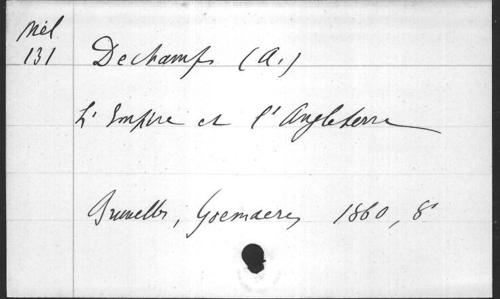 Mél
131
Dechamps (A.)
L'Empire et l'Angleterre
Bruxelles, Goemaere, 1860, 8°